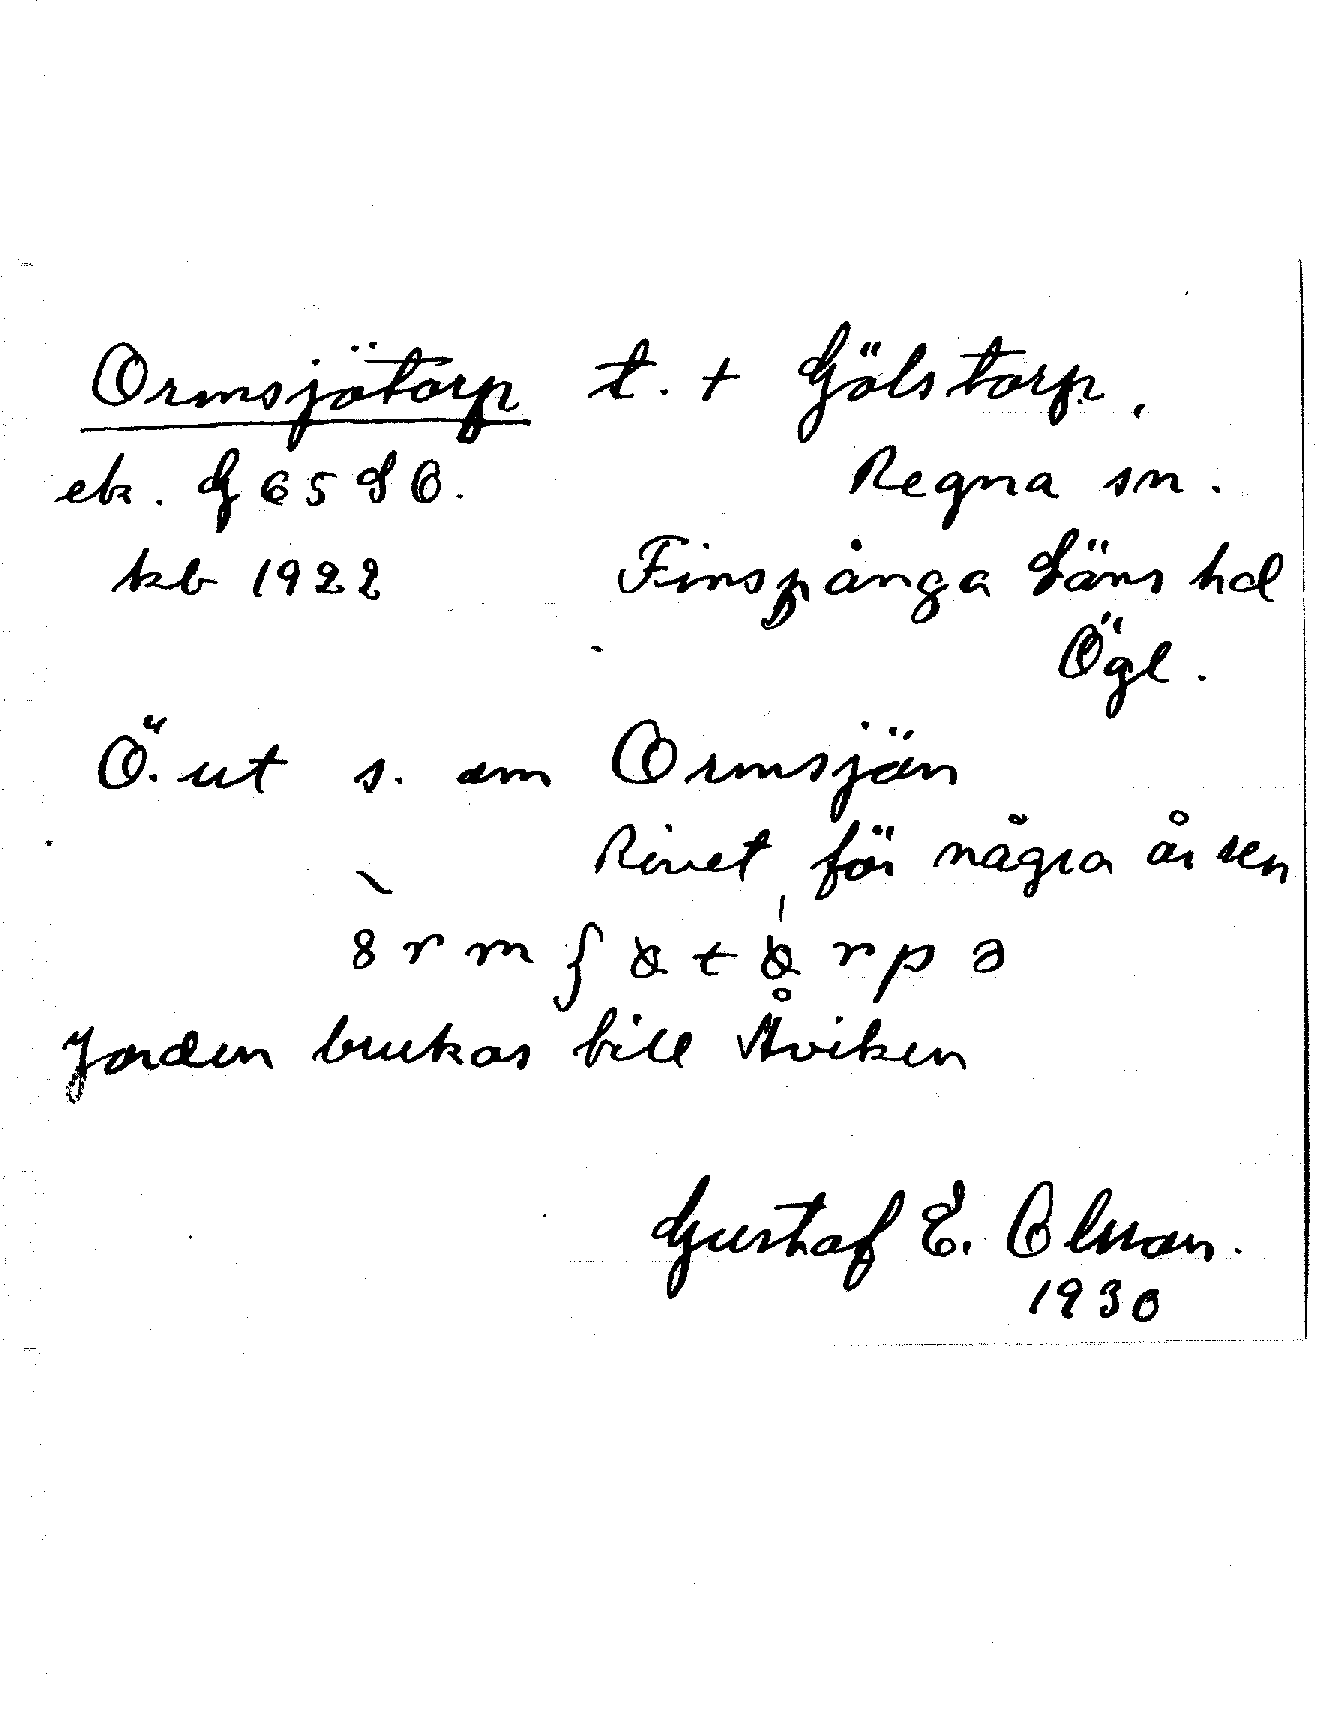 Ormsjötorp t. + Gölstorp.
ek. G 65 S Ö. Regna sn.
kb 1922 Finspånga Läns hd
Ögl.
Ö. ut s. om Ormsjön
Rivet för några år sen
Jorden brukas till Åviken
Gustaf E. Olsson.
1930